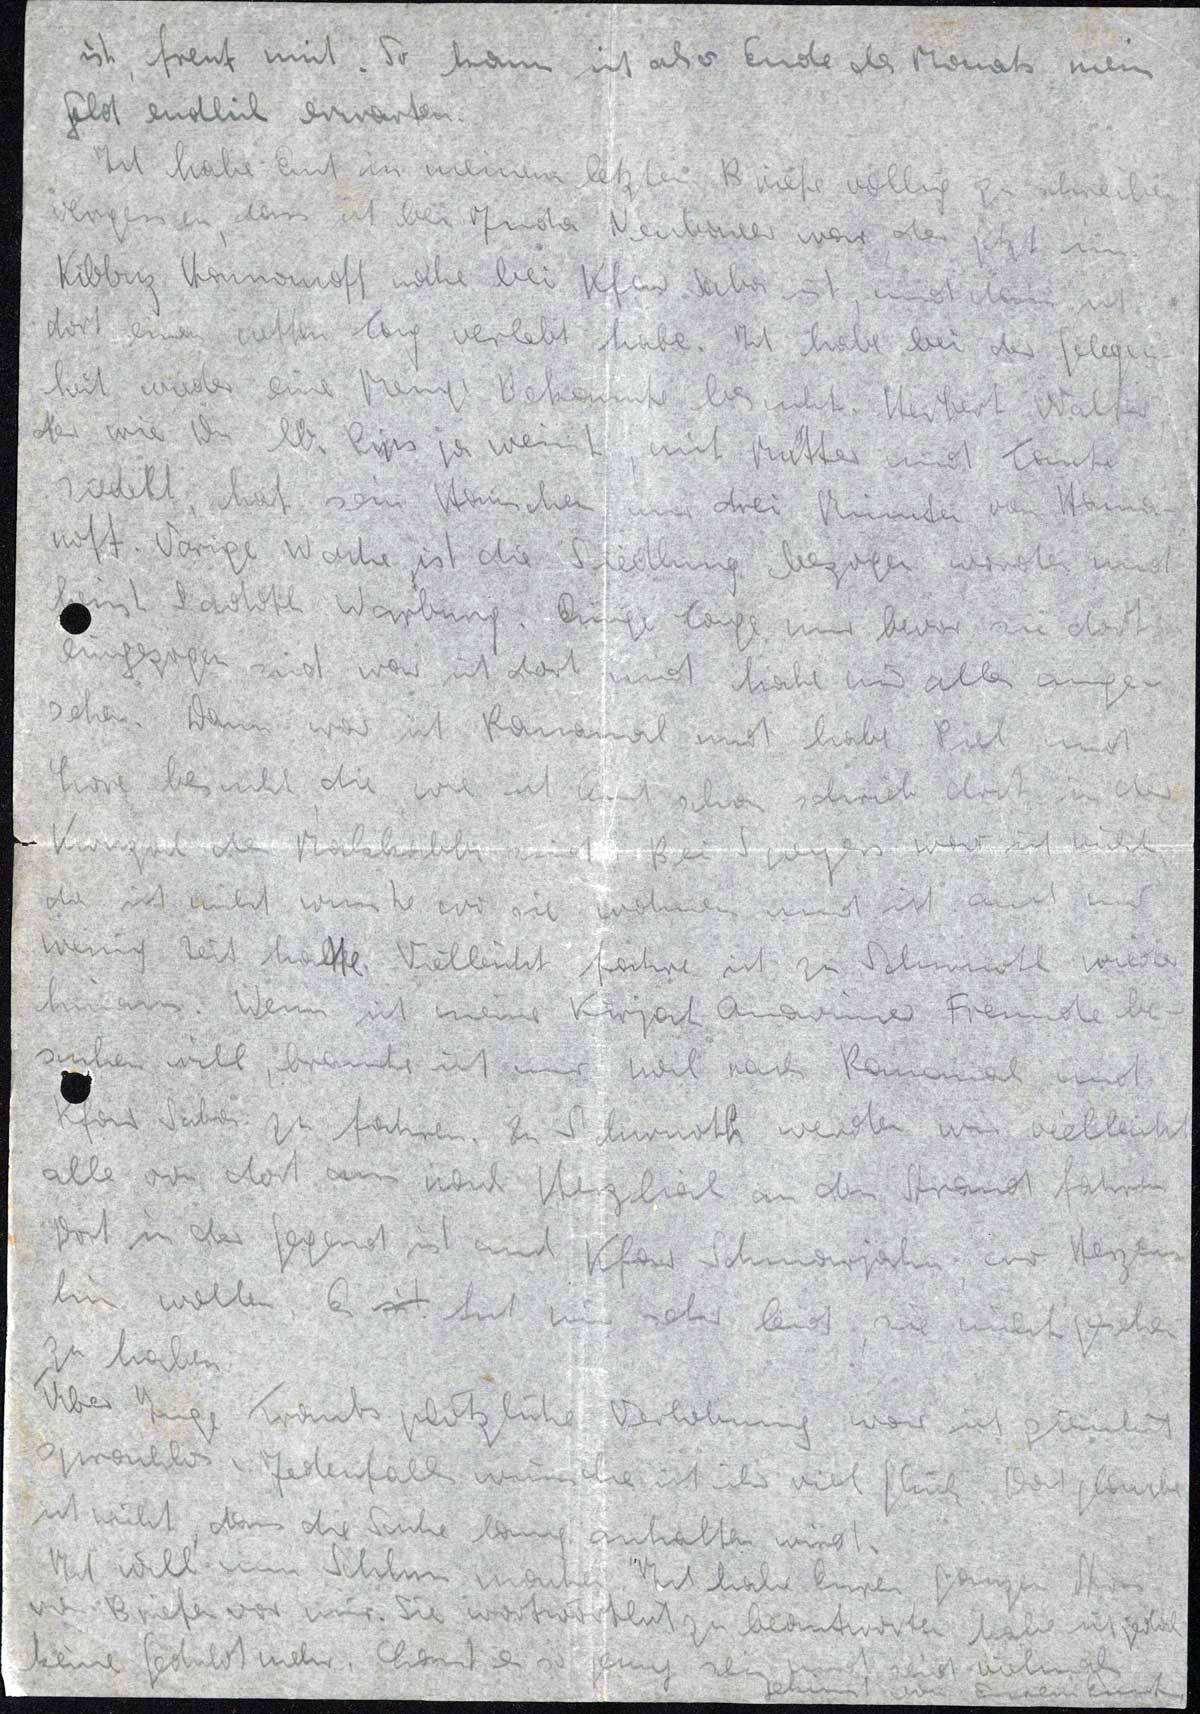 ist, freut mich. So kann ich also Ende des Monats mein
Geld endlich erwarten.
Ich habe Euch in meinem letzten Briefe völlig zu schreiben
vergessen, dass ich bei Juda Neubauer war, der jetzt im
Kibbuz nahe bei Kfar Saba ist, und dann ich
dort einen netten Tag verlebt habe. Ich habe bei der Gelegen-
heit wieder eine Menge Bekannte besucht. Herbert Walter
der wie Du lb. ja weisst, mit Mutter und Tante
siedelt, hat sein Häuschen nur drei Minuten von
Vorige Woche ist die Siedlung bezogen worden und
heisst Sadoth Warburg. Einige Tage nur bevor sie dort
eingezogen sind war ich dort und habe mir alles ange-
sehen. Dann war ich Raananah und habe und
Lore besucht, die wie ich Euch schon schrieb dort in der
der sind. Bei war ich nicht
da ich nicht wusste wo sie wohnen und ich auch nur
wenig Zeit hatte. Vielleicht fahre ich zu Schwuoth wieder
hinaus. Wenn ich meine Kirjath Anavimer Freunde be-
suchen will, brauche ich nur mal nach Raananah und
Kfar Saba zu fahren. Zu Schwuoth werden wir vielleicht
alle von dort aus nach Herzliah an den Strand fahren
Dort in der Gegend ist auch Kfar Schmarjahu, wo
hin wollten. Es tut mir sehr leid, sie nicht gesehen
zu haben.
Über Inge Traubs plötzliche Verlobung war ich zunächst
sprachlos. Jedenfalls wünsche ich ihr viel Glück. Doch glaube
ich nicht, dass die Sache lang anhalten wird.
Ich will nun Schluss machen. Ich habe Euren ganzen
von Briefen vor mir. Sie wortwörtlich zu beantworten habe ich jedoch
keine Geduld mehr. es genug sein und seid vielmals
von Eurem